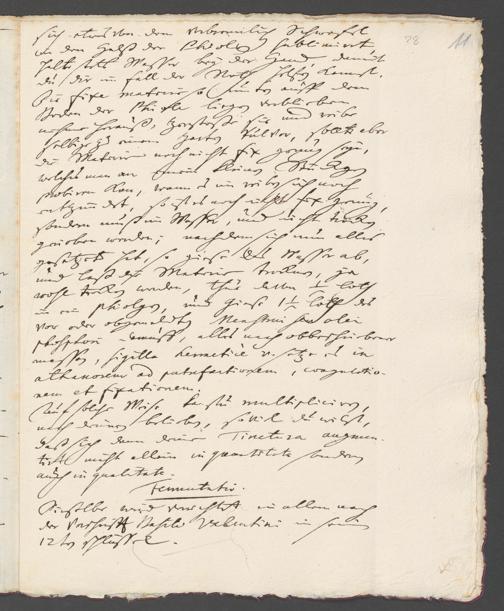 28 11
sich etwas von dem verbrenlich Schwefel
in den Halß der Phiolen sublimiert,
halte stets Wasser bey der Hand, damit
du dir im fall der Noth helffen kanst.
Die fixe materiam so hinten auff dem
Boden der Phiole liegen verblieben
nehme herauß, zerstoße sie und reibe
selbige zu einem zarten Pulver, sollte aber
die Materia noch nicht fix genug seyn,
welches man an einem kleinen Stückgen
probiren kan, wann es im reiben sich noch
entzündet, so ist es noch nicht fix genug,
sondern muß im Wasser, und nicht trocken
gerieben werden; nachdem sich nun alles
gesetzet hat, so gieße das Wasser ab,
und laß die Materie trocknen, ja
wohl trocken werden, thue davon 1 loth
in ein phiolgen, und gieße 1½ loth des
vor oder obgemeldten Menstrui seu olei
phosphori darauff, alles nach obbeschriebener
massen, sigilla hermetice u. setze es in
athanorem ad putrefactionem, coagulatio-
nem et fixationem.
Auf solche Weise kanstu multipliciren,
nach deinem belieben, so viel du wilst,
daß sich dann deine Tinctura augmen-
tiret nicht allein in quantitate sondern
auch in qualitate.
Fermentatio.
Dieselbe wird verrichtet in allem nach
der Vorschrifft Basilii Valentini in seinen
12ten Schlüssel.